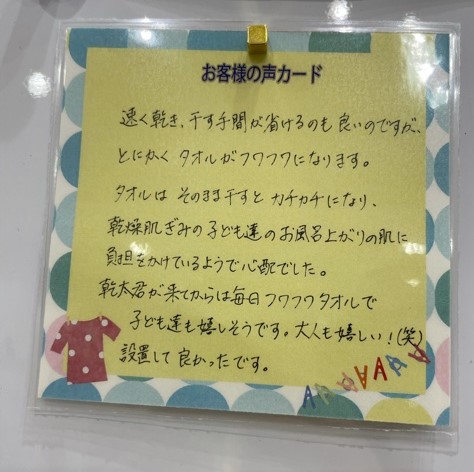 お客様の声カード
速く乾き、干す手間が省けるのも良いのですが、
とにかく タオルがフワフワになります。
タオルは そのまま干すと カチカチになり、
乾燥肌ぎみの子ども達のお風呂上がりの肌に
負担をかけているようで心配でした。
乾太君が来てからは毎日フワフワタオルで
子ども達も嬉しそうです。大人も嬉しい!(笑)
設置して良かったです。